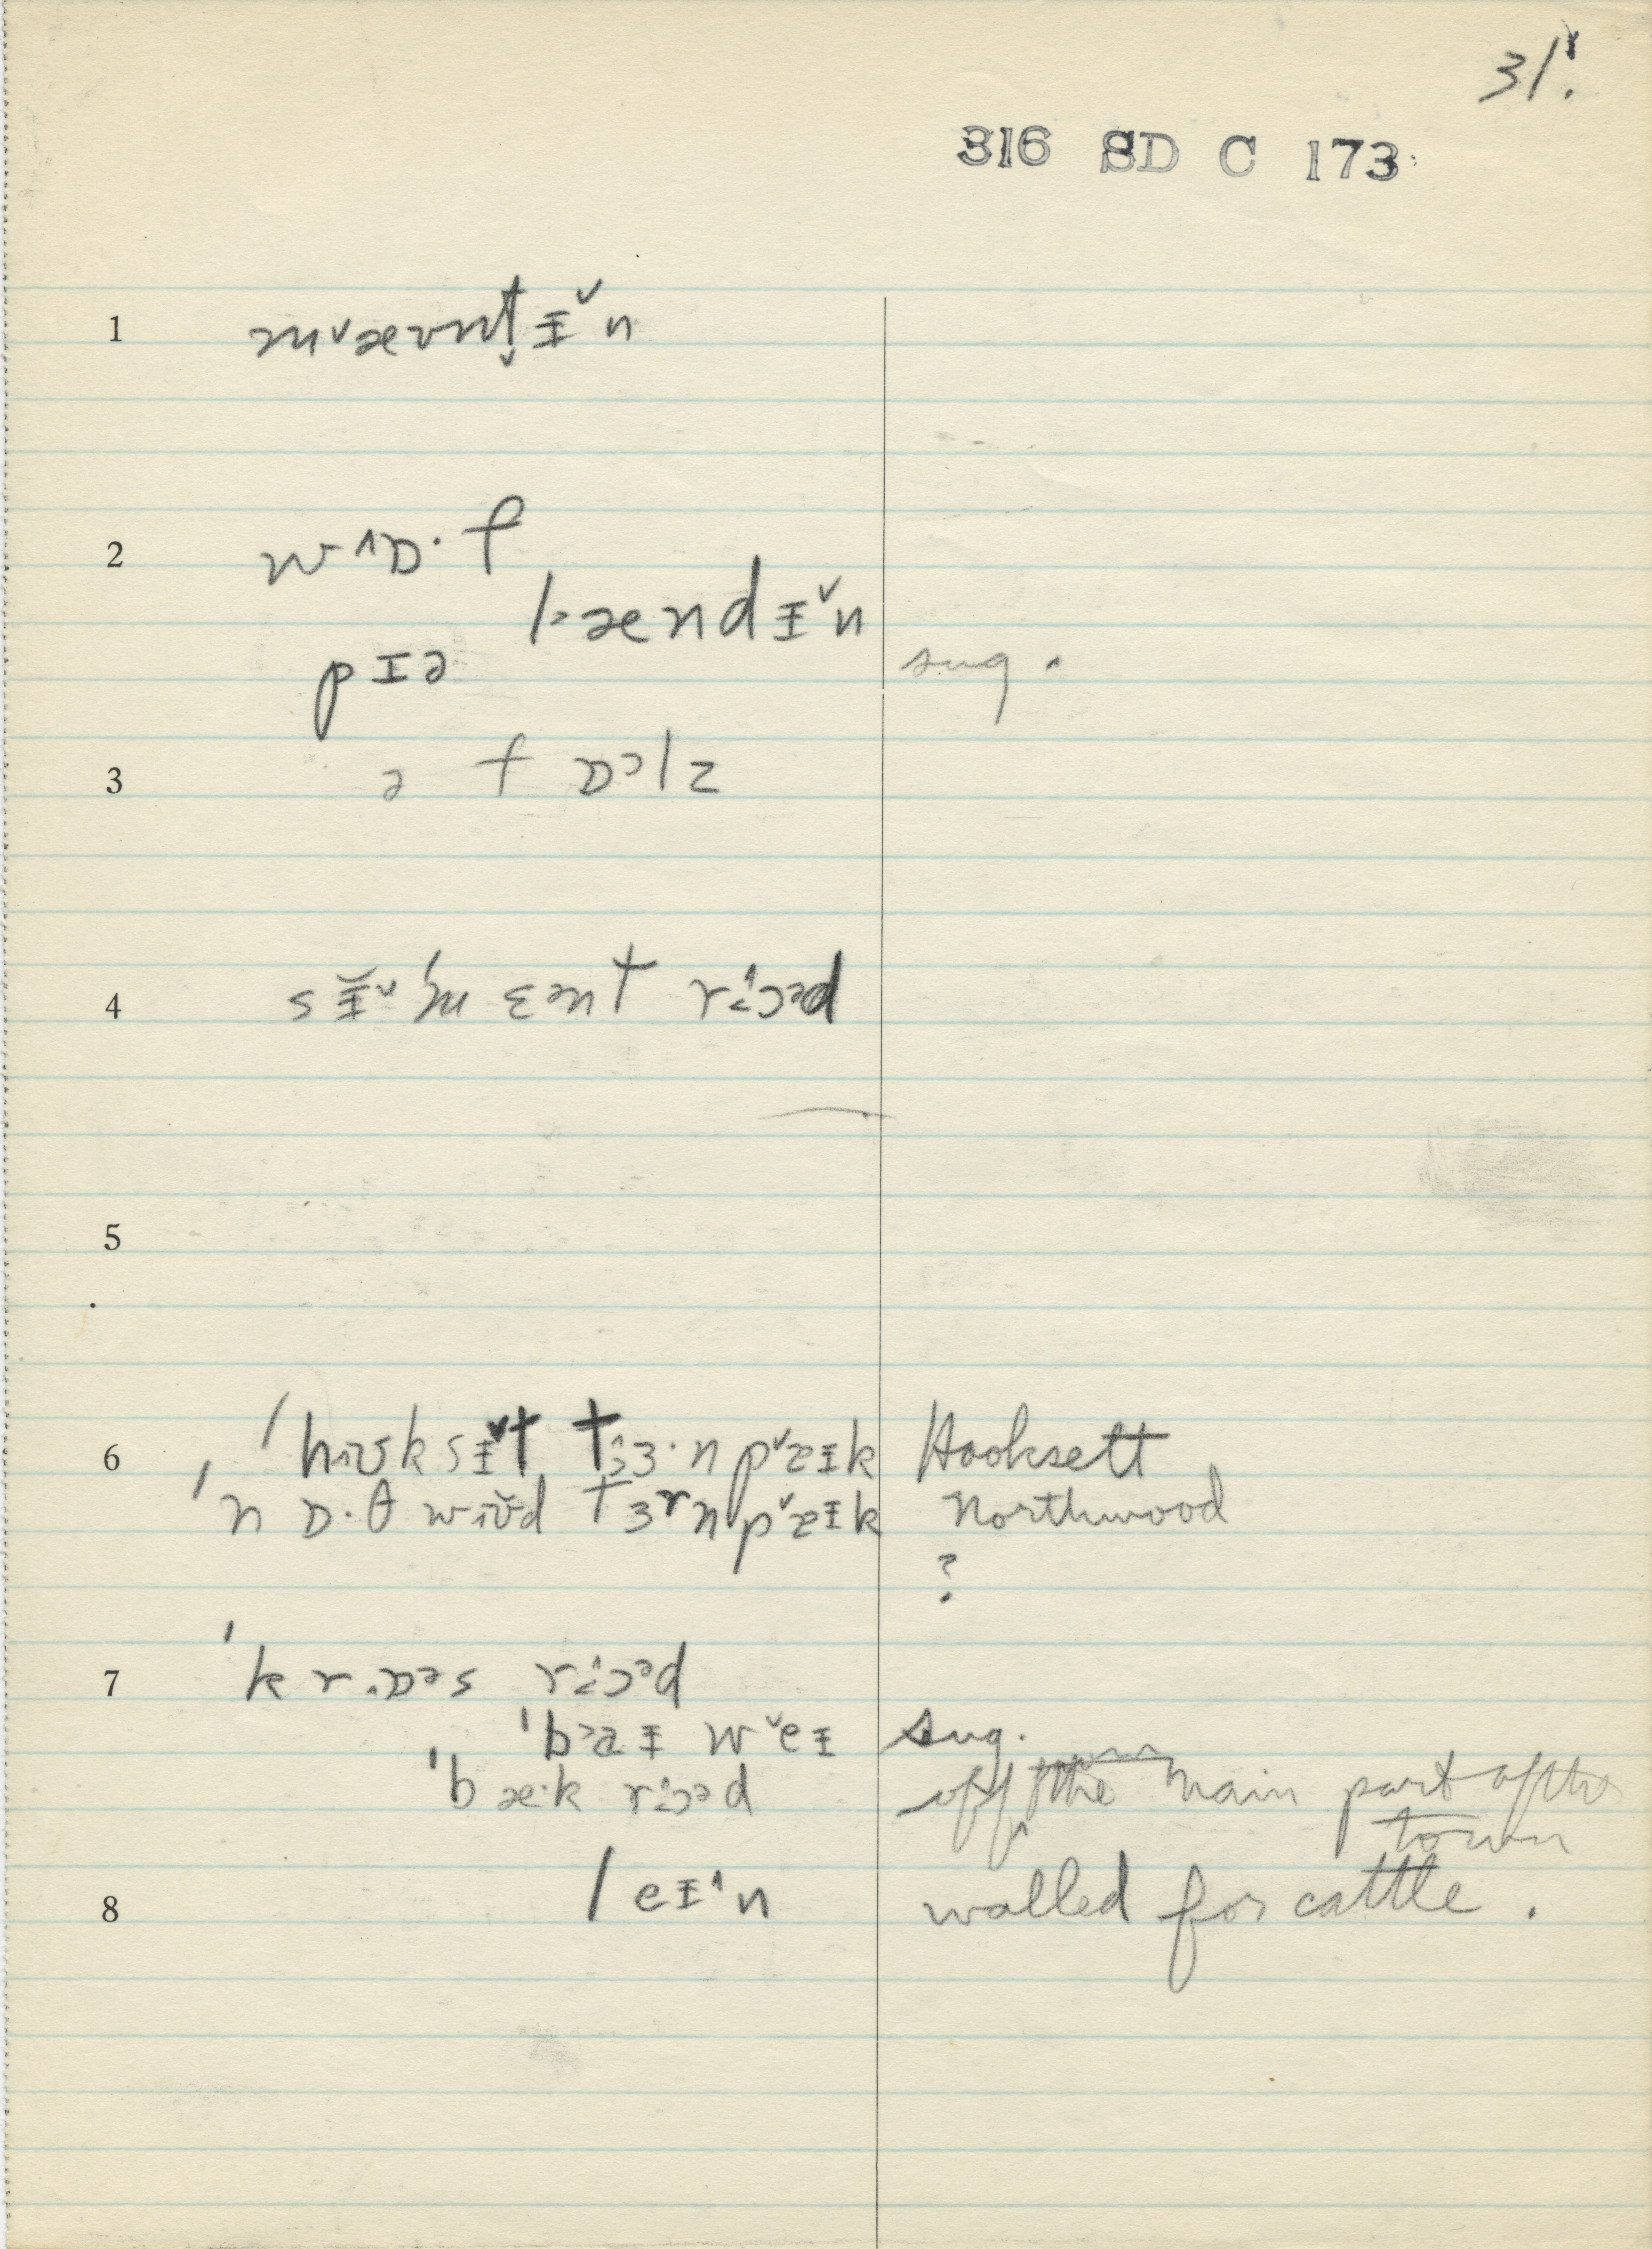 31.
316 SD C 173
1 m˅æʊnt̬ɪ̵˅n
2 w˄ɒ·f
lændɪ̵˅n
pɪə sug.
3 ə fɒᵊlz
4 sɪ̵̆˅'mɛənt r˄ɔᵊd
5
6 'hʊksɪ̵˅t tɜ·np˅æɪ̵k Hooksett
'nɒ·θwʊd tɜrnp˅æɪ̵k Northwood
?
7 'krɒᵊs r˄ɔᵊd
'baɪ̵ w˅eɪ̵ sug.
'bæ·k r˄ɔᵊd off the main part of the
town
8 leɪ̵˄n walled for cattle.